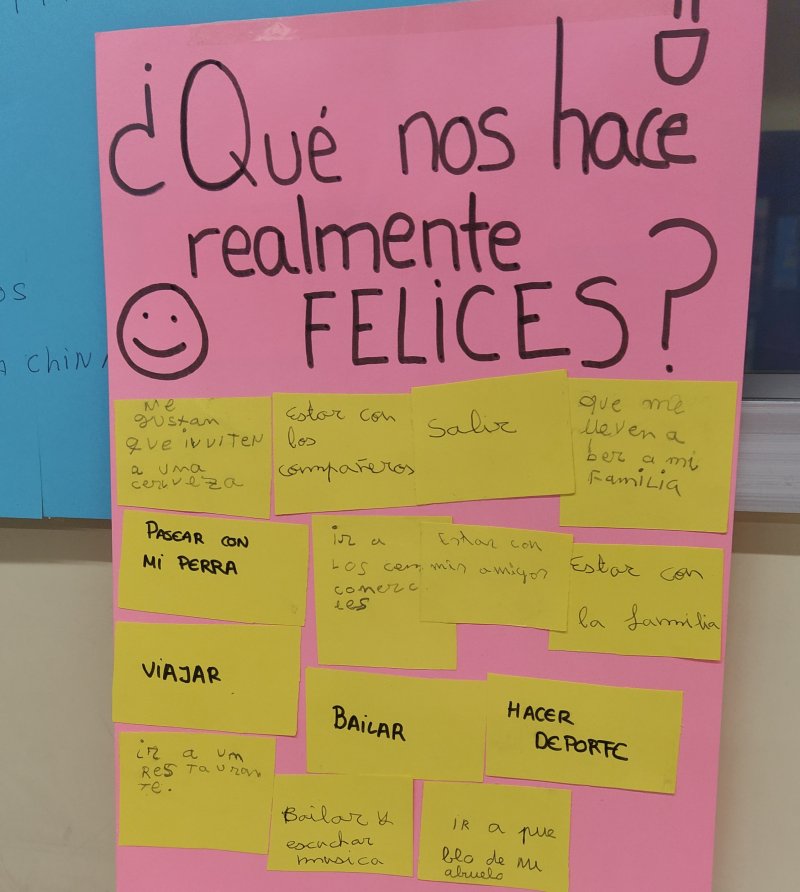 ¿Qué nos hace
realmente
FELICES?
Me
gustan
que inviten
a una
cerveza
Estar con
los
compañeros
Salir
que me
lleven a
ber a mi
Familia
PASEAR CON
MI PERRA
ir a
Los cen
comerc
les
Estar con
mis amigos
Estar con
la familia
VIAJAR
BAILAR
HACER
DEPORTE
ir a um
Restauran
te.
Bailar y
escuchar
musica
IR a pue
blo de mi
abuelo
a chin